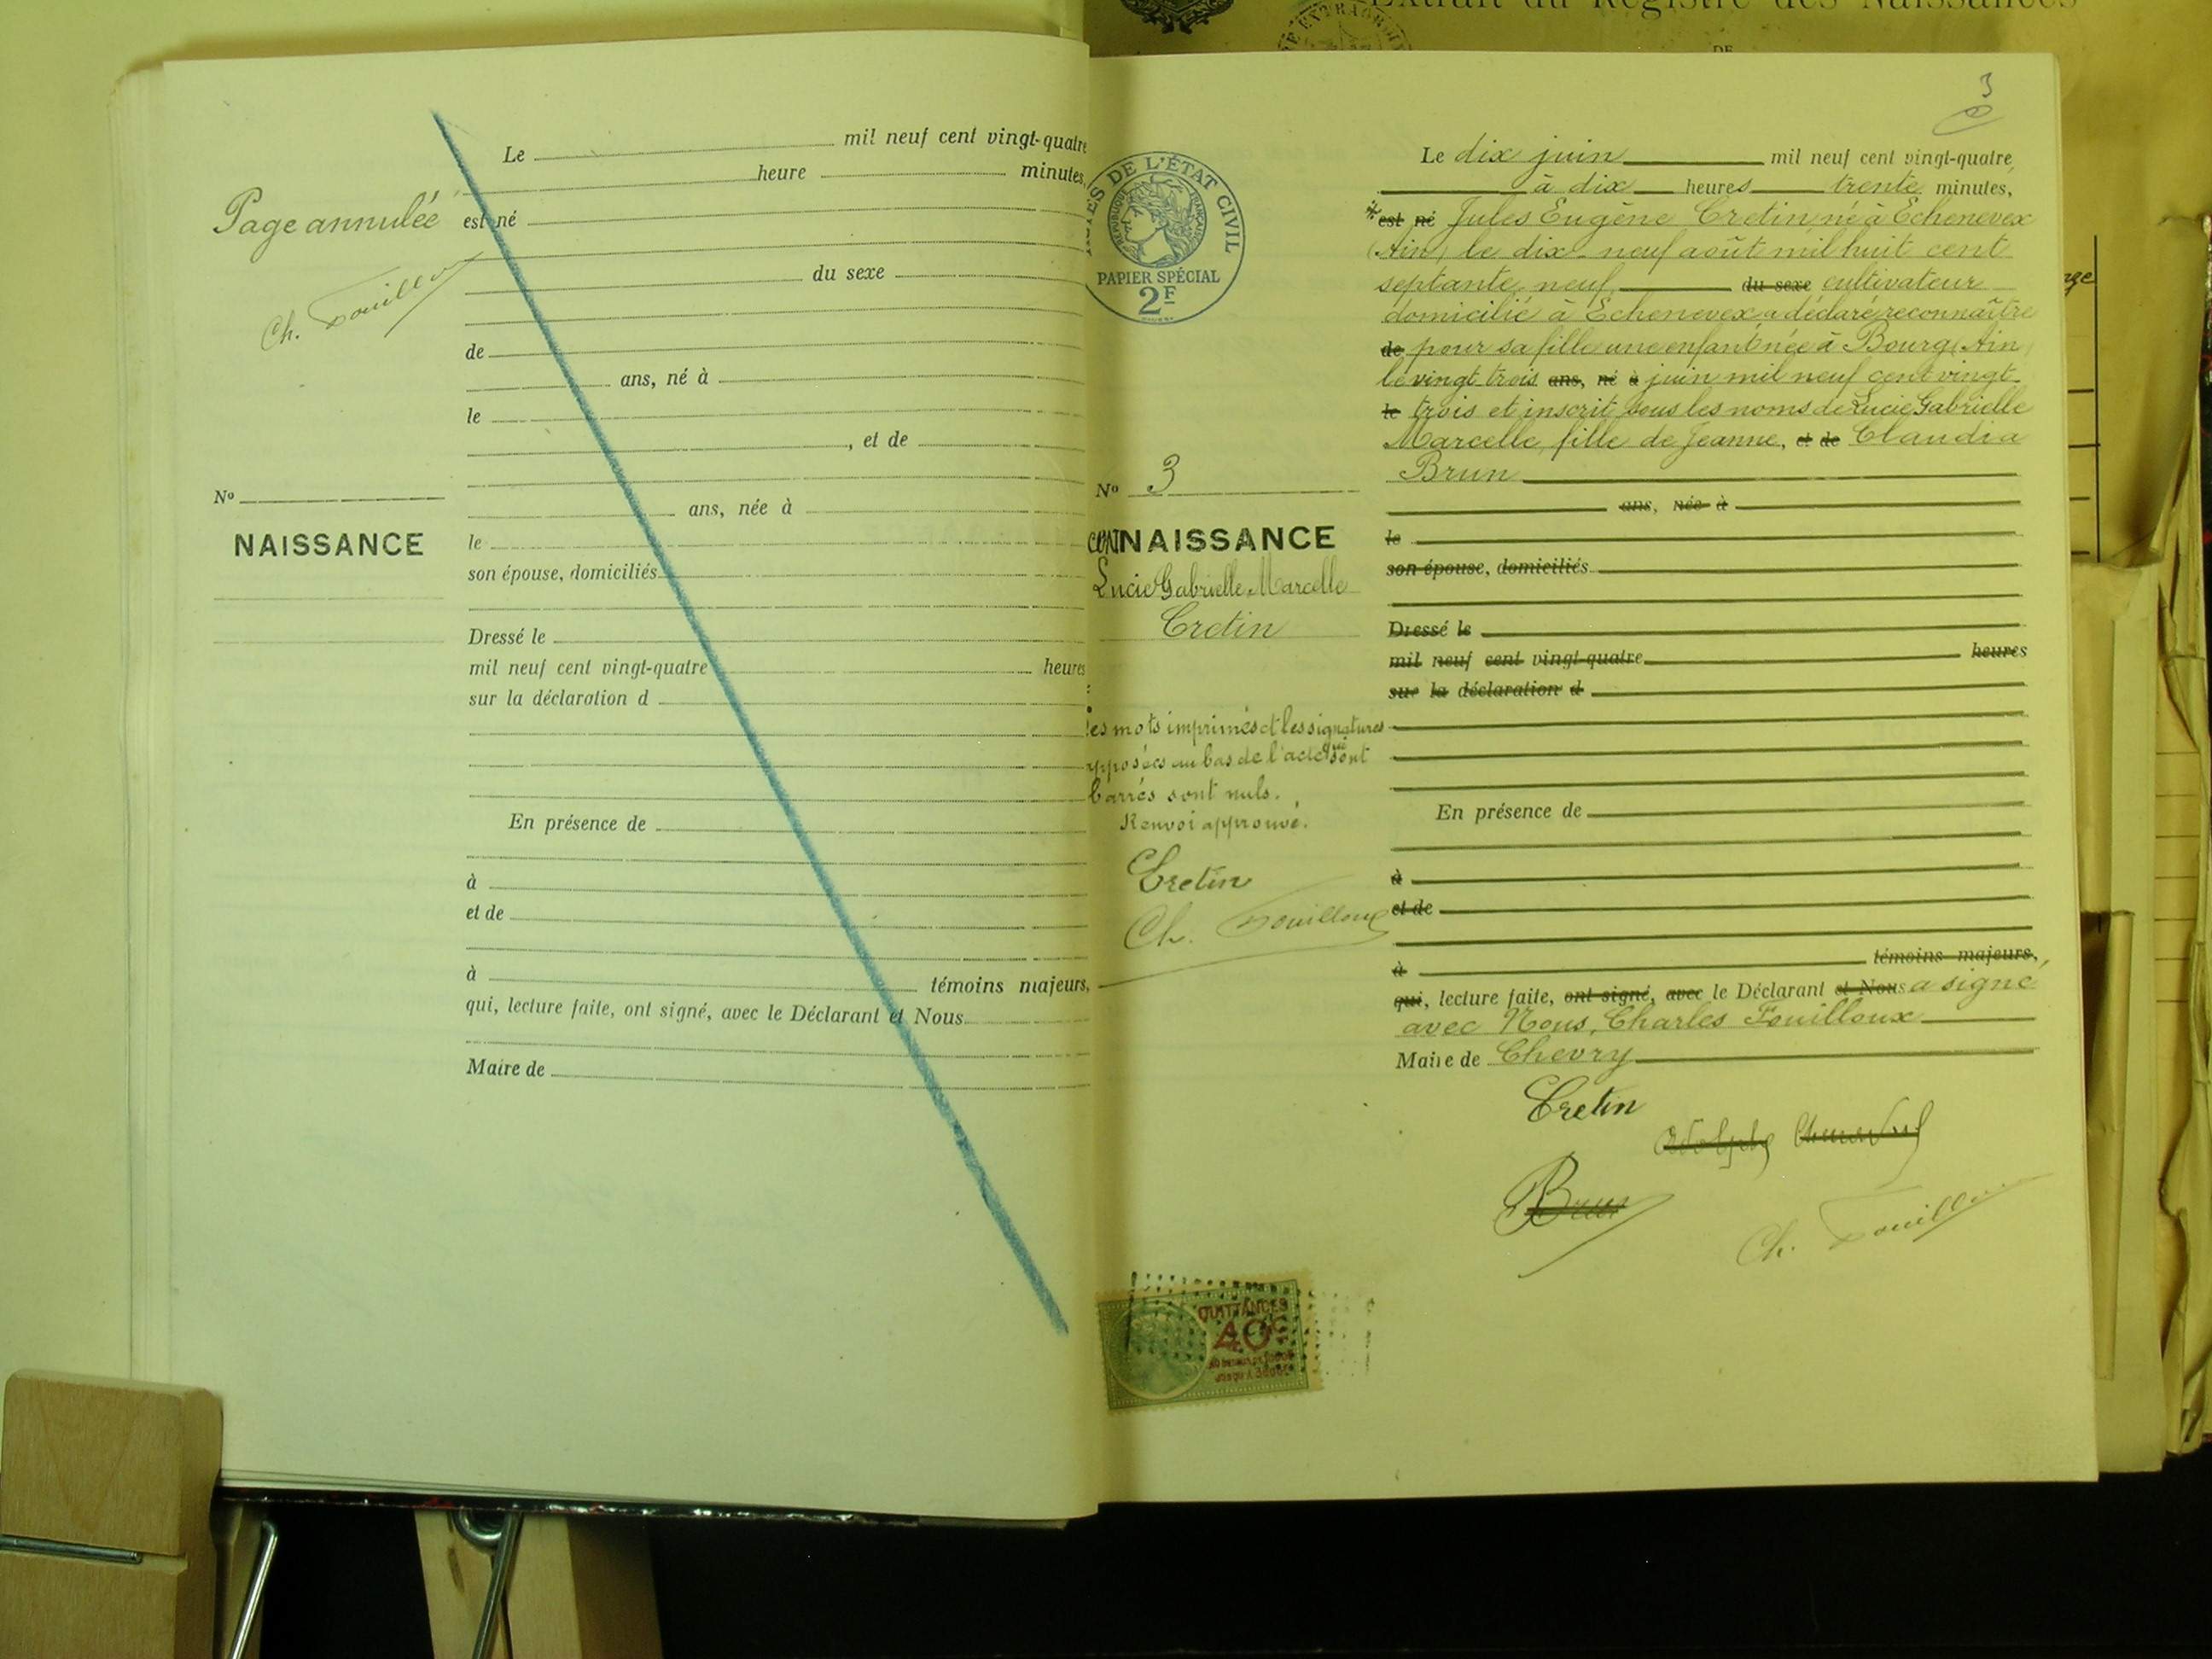 Extrait du Registre des Naissances
DE
Le mil neuf cent vingt-quatre
heure minutes,
Page annulée
est né
Ch. Fouilloux
du sexe
de
ans, né à
le
, et de
No
ans, née à
NAISSANCE
le
son épouse, domiciliés
Dressé le
mil neuf cent vingt-quatre heures
sur la déclaration d
En présence de
à
et de
à témoins majeurs,
qui, lecture faite, ont signé, avec le Déclarant et Nous
Maire de
3
DE L'ÉTAT CIVIL
RÉPUBLIQUE FRANÇAISE
PAPIER SPÉCIAL
2F
No 3
CONNAISSANCE
Lucie Gabrielle Marcelle
Cretin
les mots imprimés et les signatures
apposées au bas de l'acte qui sont
barrés sont nuls.
Renvoi approuvé.
Cretin
Ch. Fouilloux
Le dix juin mil neuf cent vingt-quatre
à dix heures trente minutes,
est né Jules Eugène Cretin né à Echenevex
(Ain) le dix-neuf août mil huit cent
septante neuf du sexe cultivateur
domicilié à Echenevex a déclaré reconnaître
de pour sa fille une enfant née à Bourg (Ain)
le vingt trois ans, né à juin mil neuf cent vingt
le trois et inscrit sous les noms de Lucie Gabrielle
Marcelle, fille de Jeanne, et de Claudia
Brun
ans, née à
le
son épouse, domiciliés
Dressé le
mil neuf cent vingt-quatre heures
sur la déclaration d
En présence de
à
et de
à témoins majeurs,
qui, lecture faite, ont signé, avec le Déclarant et Nous a signé,
avec Nous, Charles Fouilloux
Maire de Chevry
Cretin
Adolphe
Brun
Ch. Fouilloux
QUITTANCES
40c